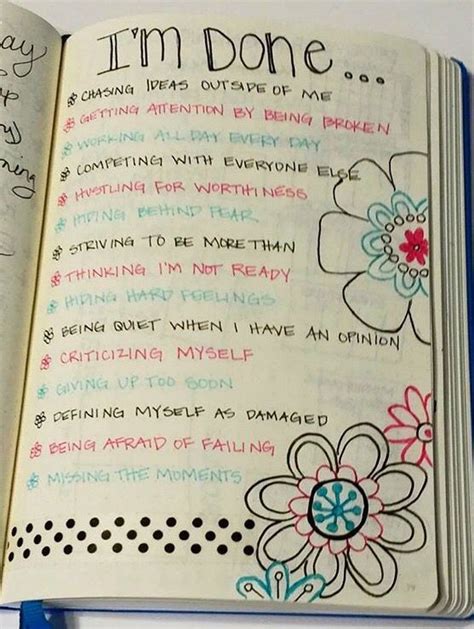 I'm Done...
CHASING IDEAS OUTSIDE OF ME
GETTING ATTENTION BY BEING BROKEN
WORKING ALL DAY EVERY DAY
COMPETING WITH EVERYONE ELSE
HUSTLING FOR WORTHINESS
HIDING BEHIND FEAR
STRIVING TO BE MORE THAN
THINKING I'M NOT READY
HIDING HARD FEELINGS
BEING QUIET WHEN I HAVE AN OPINION
CRITICIZING MYSELF
GIVING UP TOO SOON
DEFINING MYSELF AS DAMAGED
BEING AFRAID OF FAILING
MISSING THE MOMENTS